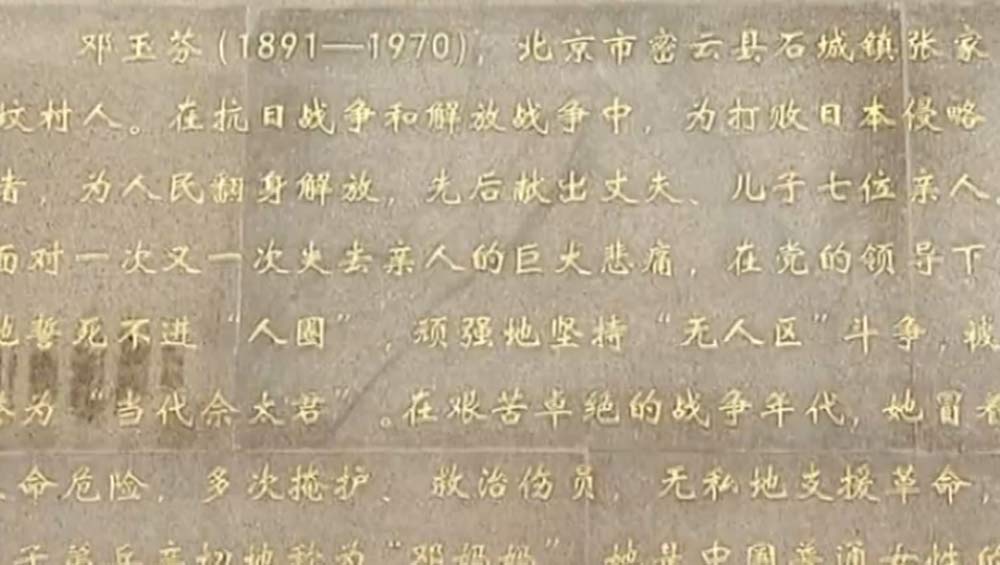 邓玉芬(1891—1970)，北京市密云县石城镇张家
坟村人。在抗日战争和解放战争中，为打败日本侵略
者，为人民翻身解放，先后献出丈夫、儿子七位亲人。
面对一次又一次失去亲人的巨大悲痛，在党的领导下
她誓死不进“人圈”，顽强地坚持“无人区”斗争，被
为“当代佘太君”。在艰苦卓绝的战争年代，她冒着
命危险，多次掩护、救治伤员，无私地支援革命，
子弟兵亲切地称为“邓妈妈”她是中国普通女性的